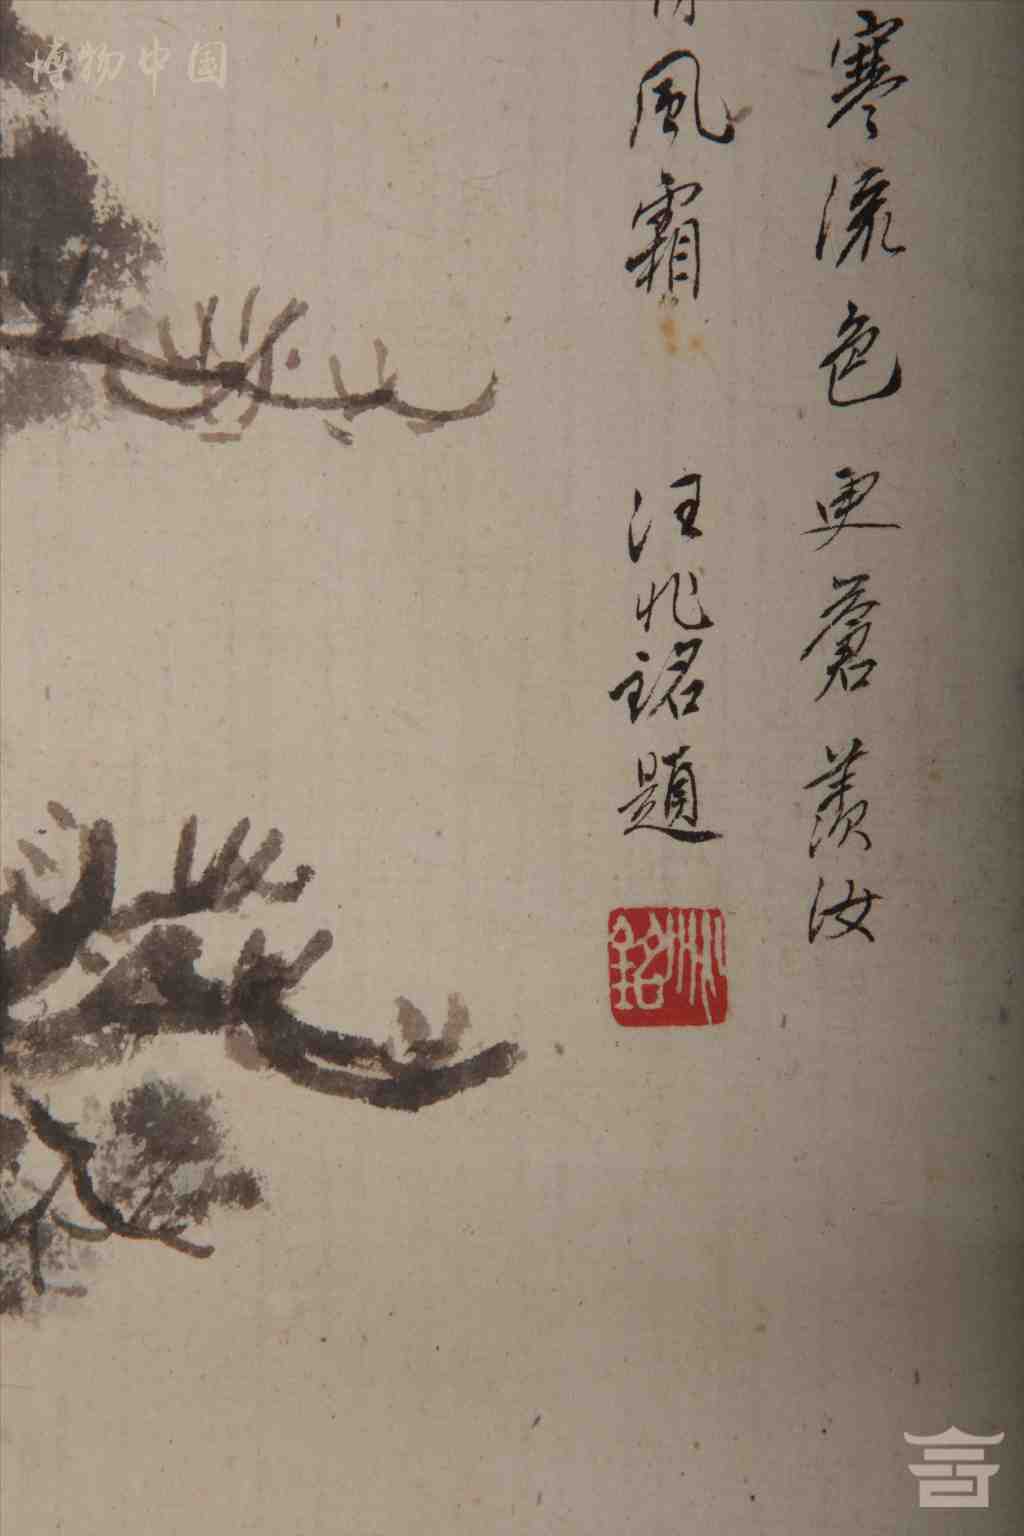 寒流色更蒼羨汝
風霜
汪兆銘題
兆銘
博物中国